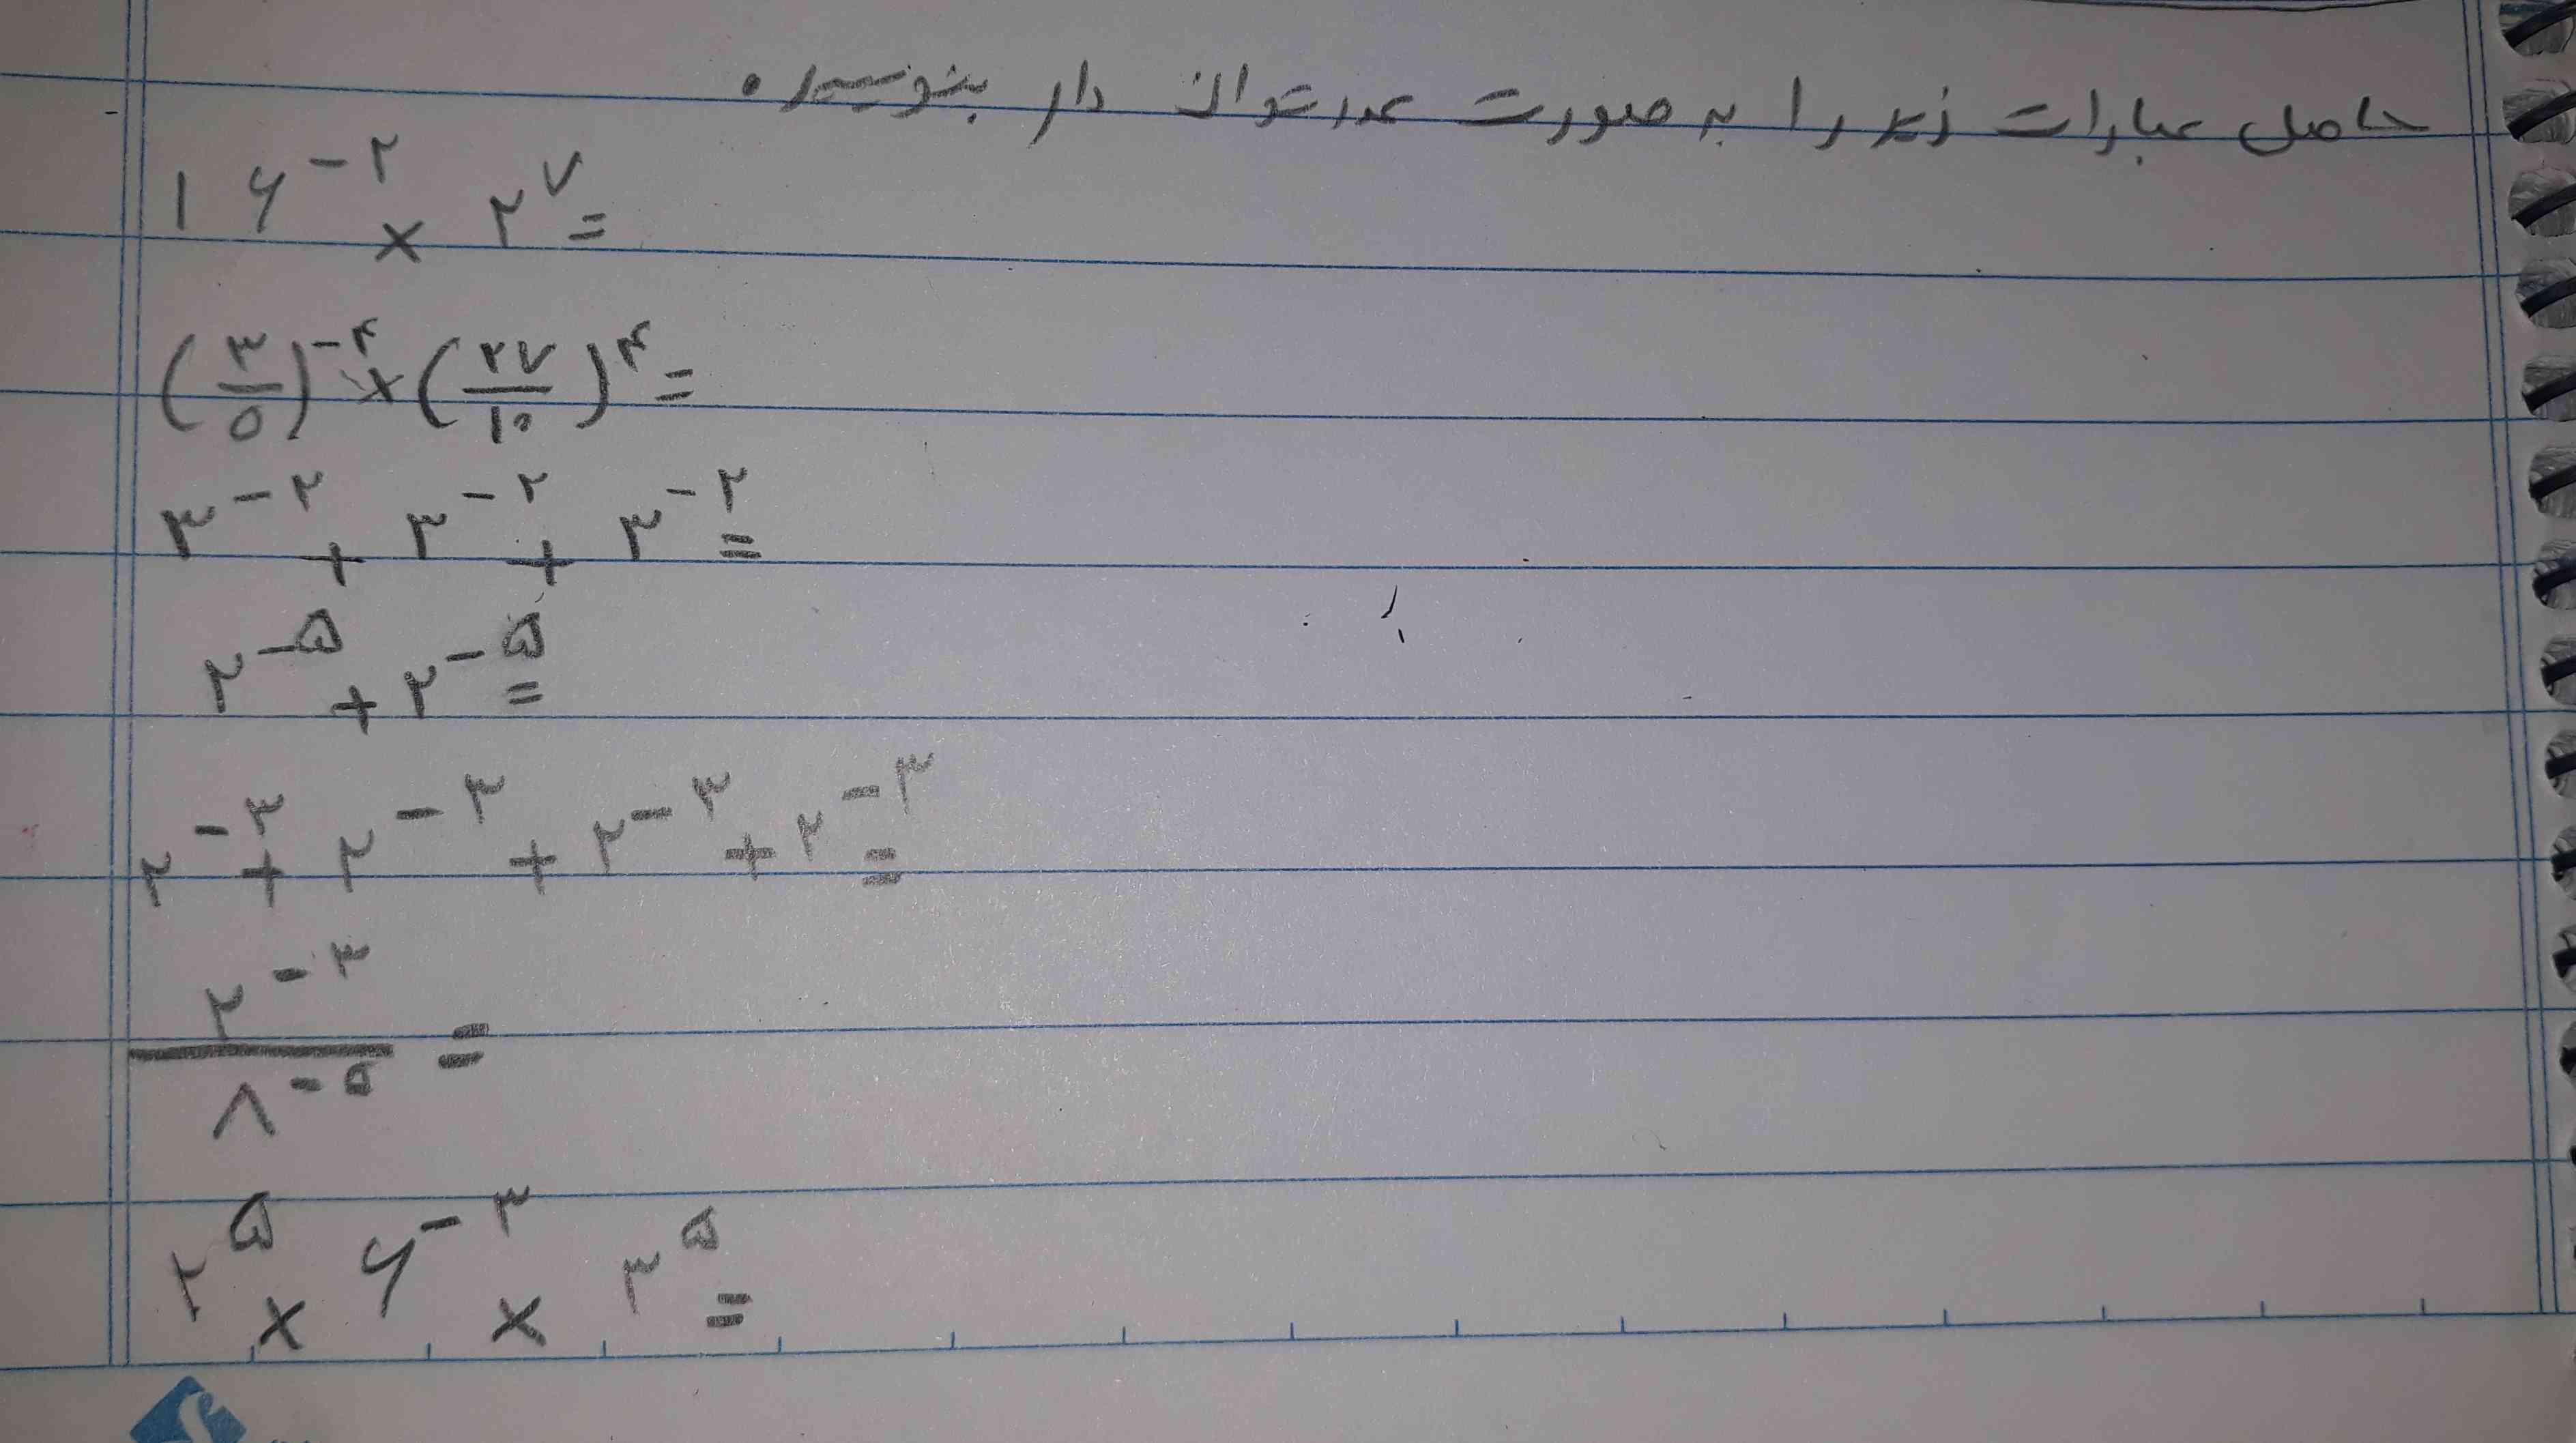 حاصل عبارات زیر را به صورت عدد توان دار بنویسید.
۱۶^-۲ × ۲^۷ =
(۳/۵)^-۴ × (۲۷/۱۰)^۴ =
۳^-۲ + ۳^-۲ + ۳^-۲ =
۲^-۵ + ۲^-۵ =
۲^-۳ + ۲^-۳ + ۲^-۳ + ۲^-۳ =
۲^-۳ / ۸^-۵ =
۲^۵ × ۶^-۳ × ۳^۵ =